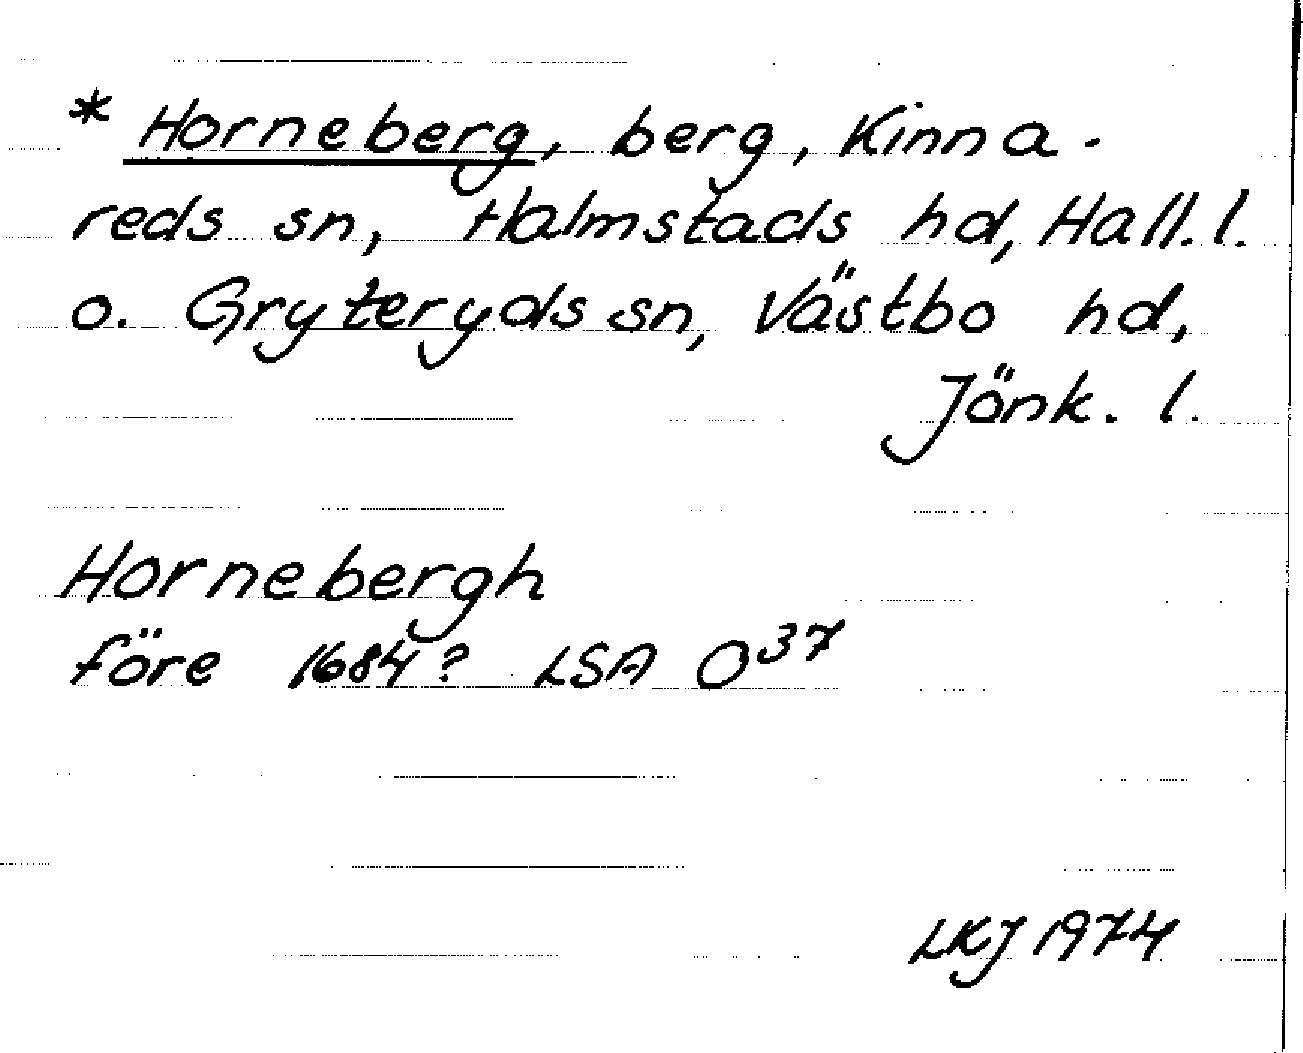 * Horneberg, berg, Kinna-
reds sn, Halmstads hd, Hall. l.
o. Gryteryds sn, Västbo hd,
Jönk. l.
Hornebergh
före 1684? LSA O³⁷
LKJ 1974